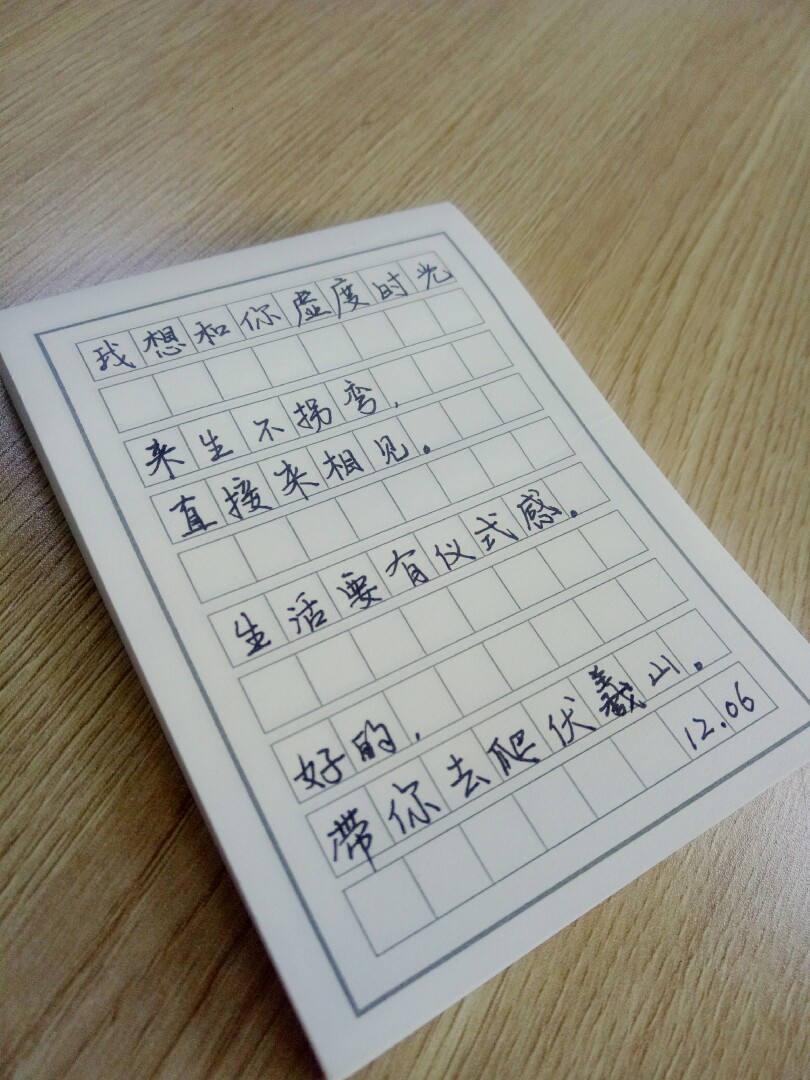 我想和你虚度时光
来生不拐弯，
直接来相见。
生活要有仪式感。
好的，
带你去爬伏羲山。
12.06